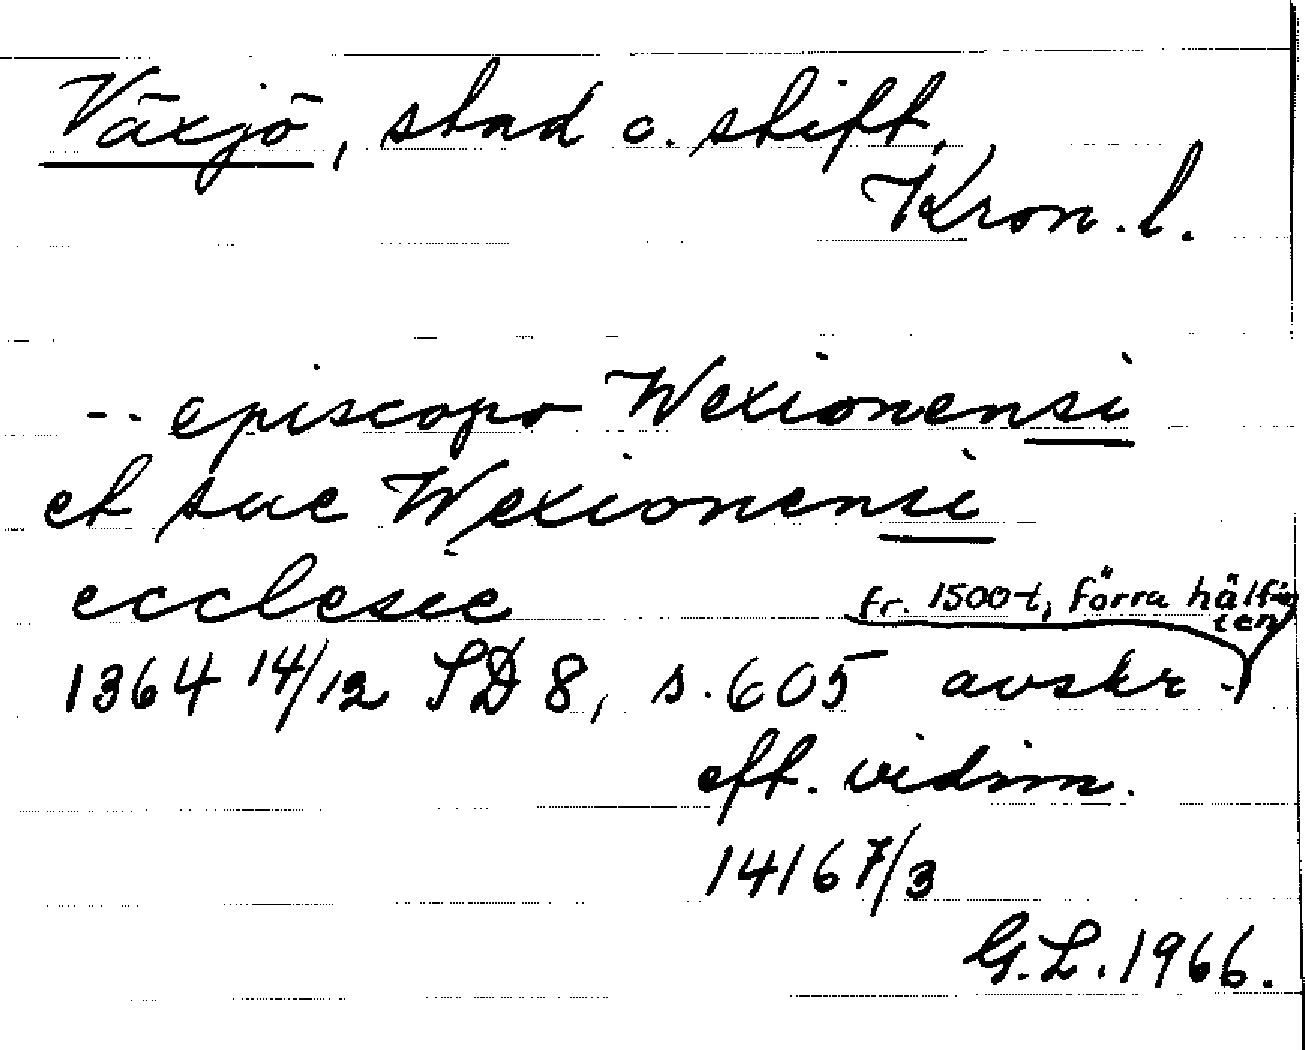 Växjö, stad o. stift,
Kron. l.
-- episcopo Wexionensi
et sue Wexionensi
ecclesie
fr. 1500-t, förra hälften
1364 14/12 SD 8, s. 605 avskr.
eft. vidim.
1416 7/3
G.L. 1966.